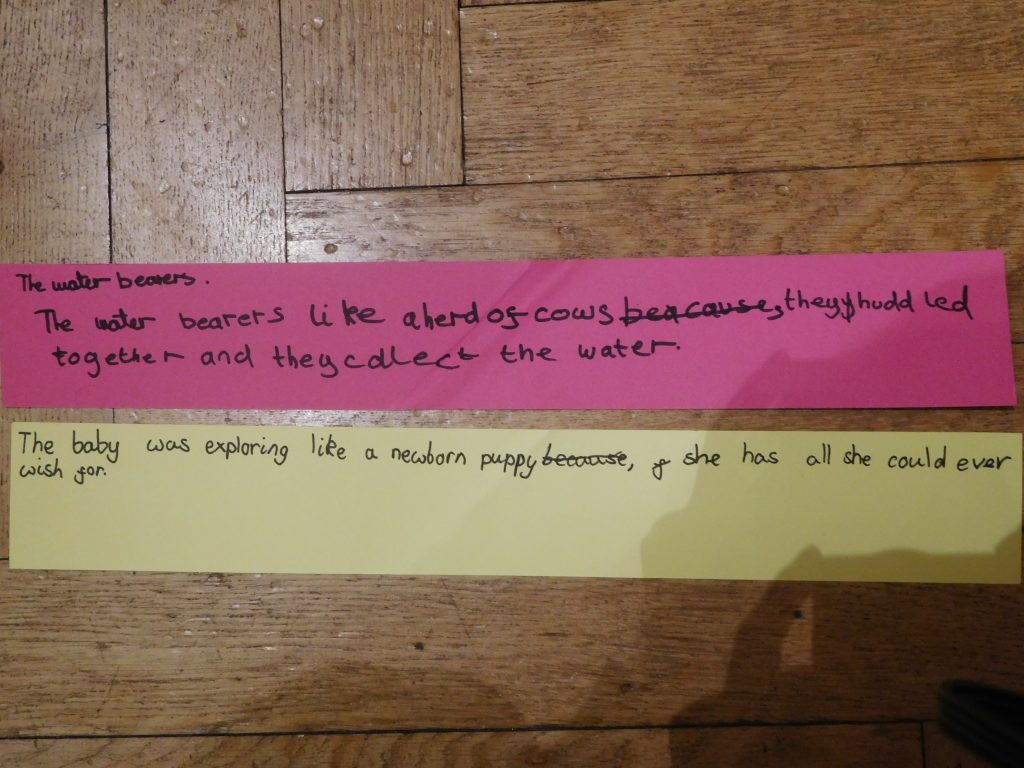 The water bearers.
The water bearers like a herd of cows beacause, they hudd led
together and they collect the water.
The baby was exploring like a newborn puppy because, she has all she could ever
wish for.